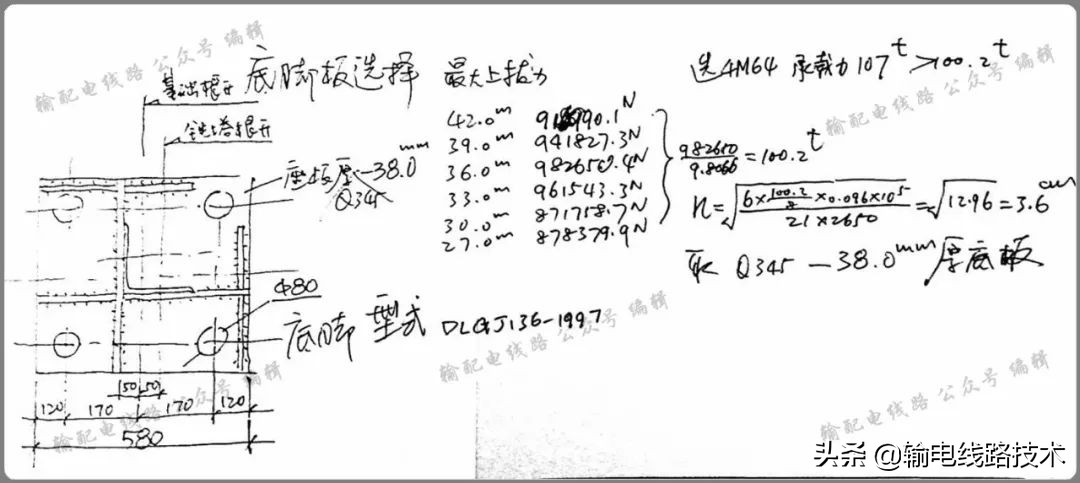 底脚板选择
基础根开
铁塔根开
座板厚-38.0mm
Q345
Φ80
底脚型式 DLGJ136-1997
150 50
120 170 170 120
580
最大上拔力
42.0m 990.1N
39.0m 941827.3N
36.0m 982650.4N
33.0m 961543.3N
30.0m 871758.7N
27.0m 878379.9N
982650/9.8066=100.2t
选4M64 承载力107t>100.2t
n=√(6×100.2/8×0.096×10⁵/21×2650)=√12.96=3.6cm
取 Q345-38.0mm厚底板
输配电线路 公众号 编辑
输配电线路 公众号 编辑
输配电线路 公众号 编辑
输配电线路 公众号 编辑
输配电线路 公众号 编辑
输配电线路 公众号 编辑
头条 @输电线路技术